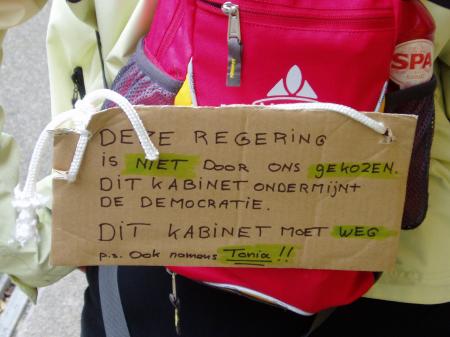 SPA
DEZE REGERING
is NIET DOOR ONS gEKOZEN.
DIT KABINET ONDERMIJNT
DE DEMOCRATIE.
DIT KABINET MOET WEG
p.s. Ook namens Tonia !!